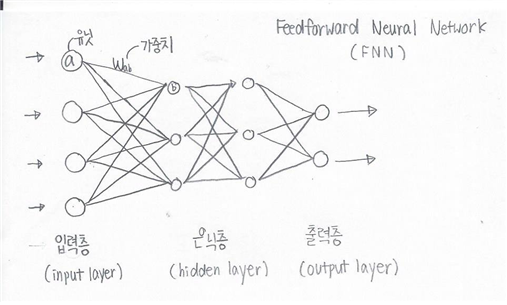 Feedforward Neural Network
(FNN)
유닛
가중치
a
Wab
b
입력층
은닉층
출력층
(input layer)
(hidden layer)
(output layer)